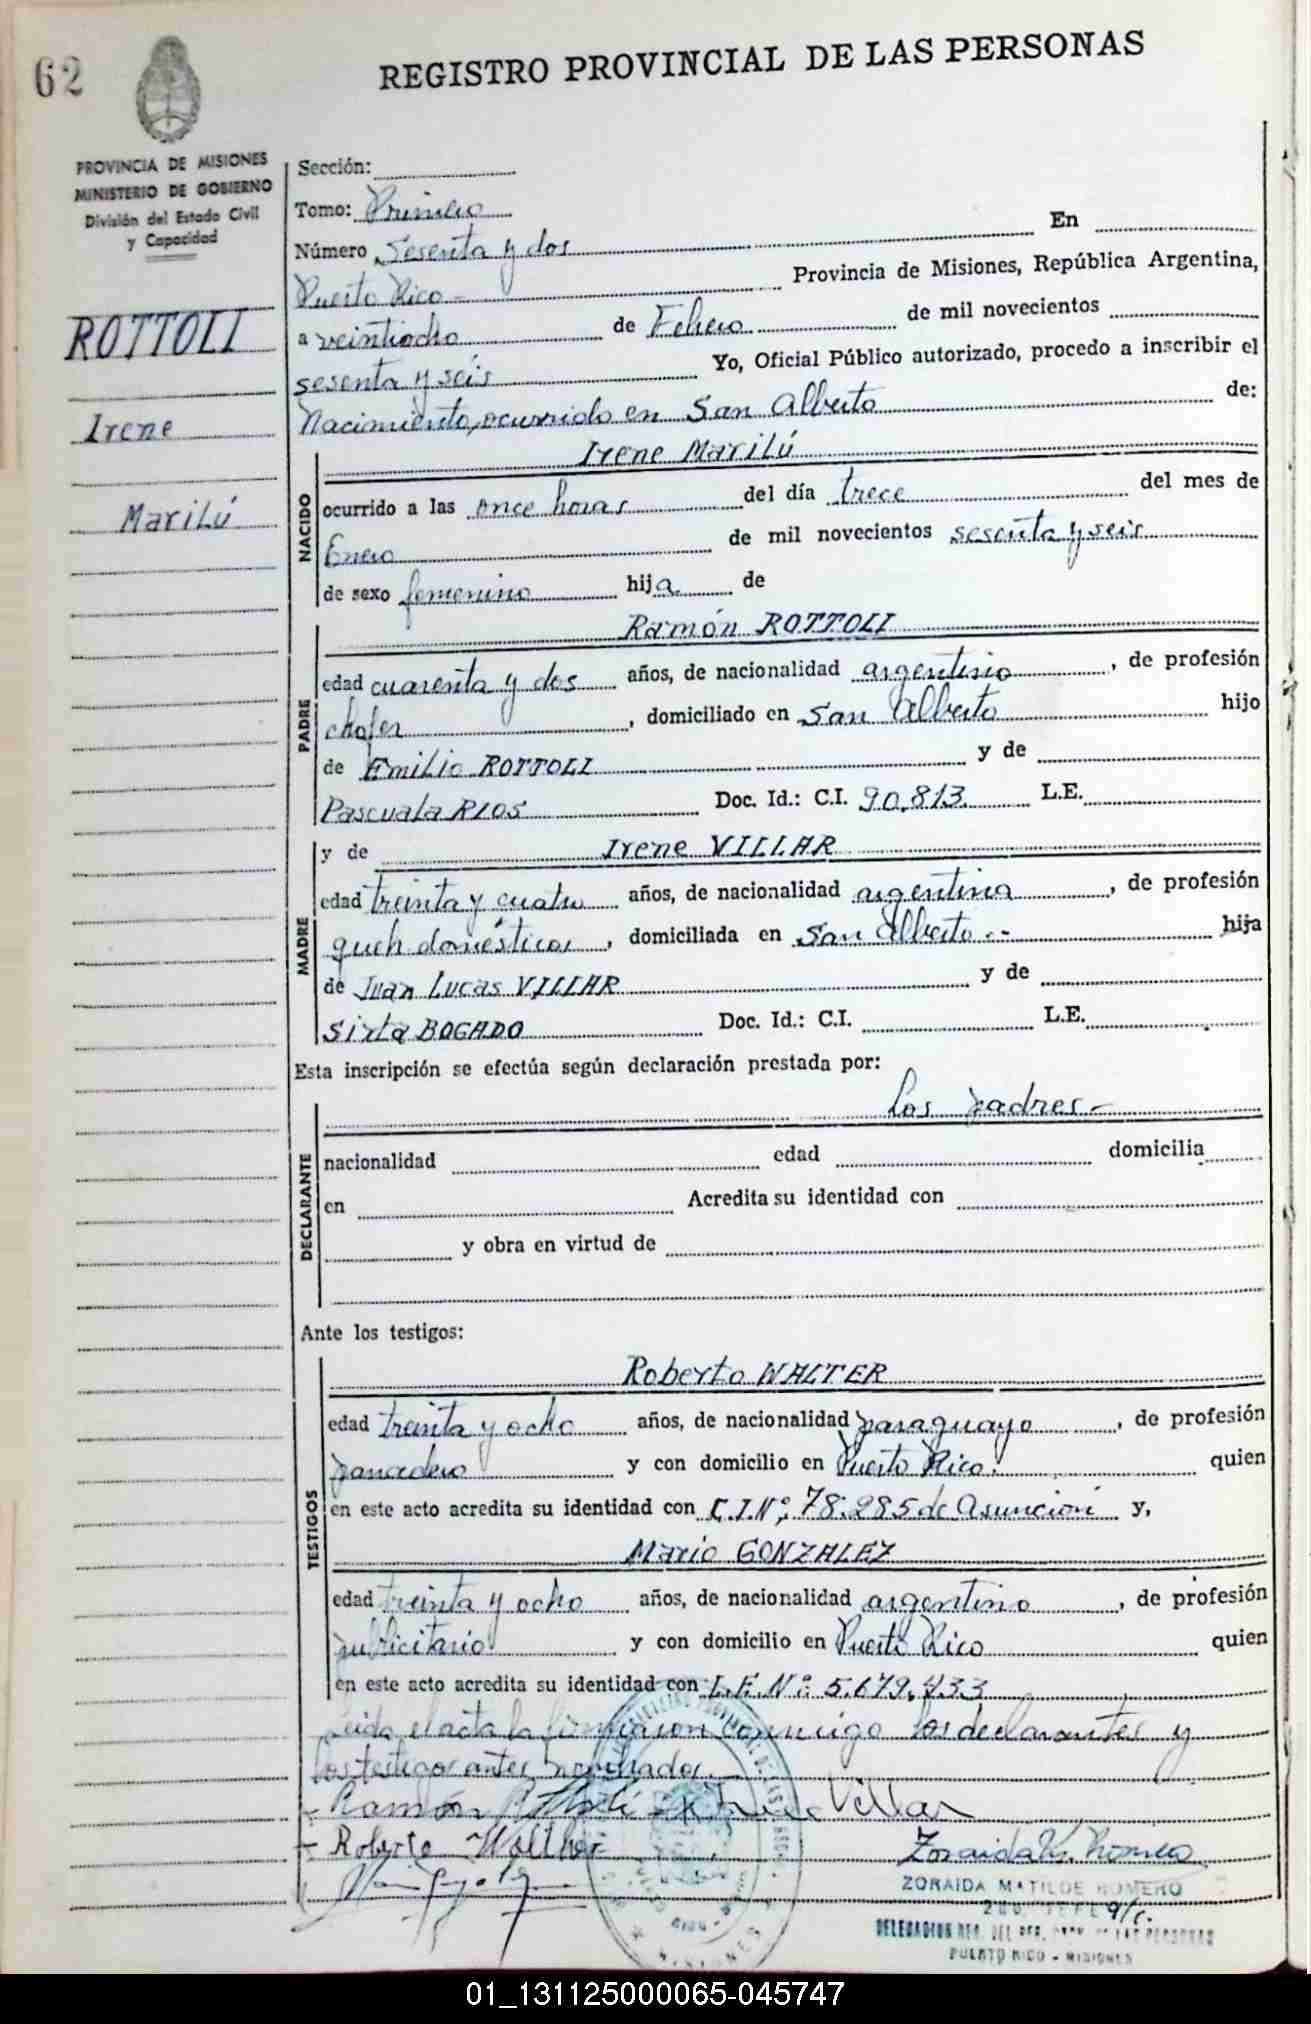 62
REGISTRO PROVINCIAL DE LAS PERSONAS
PROVINCIA DE MISIONES
MINISTERIO DE GOBIERNO
División del Estado Civil
y Capacidad
ROTTOLI
Irene
Marilú
Sección:
Tomo: Primero
Número Sesenta y dos En
Puerto Rico - Provincia de Misiones, República Argentina,
a veintiocho de Febrero de mil novecientos
sesenta y seis Yo, Oficial Público autorizado, procedo a inscribir el
Nacimiento, ocurrido en San Alberto de:
NACIDO
Irene Marilú
ocurrido a las once horas del día trece del mes de
Enero de mil novecientos sesenta y seis
de sexo femenino hija de
PADRE
Ramón ROTTOLI
edad cuarenta y dos años, de nacionalidad argentino, de profesión
chofer, domiciliado en San Alberto hijo
de Emilio ROTTOLI y de
Pascuala RIOS Doc. Id.: C.I. 90.813 L.E.
MADRE
y de Irene VILLAR
edad treinta y cuatro años, de nacionalidad argentina, de profesión
queh. domésticos, domiciliada en San Alberto -- hija
de Juan Lucas VILLAR y de
Sixta BOGADO Doc. Id.: C.I. L.E.
Esta inscripción se efectúa según declaración prestada por:
DECLARANTE
los padres -
nacionalidad edad domicilia
en Acredita su identidad con
y obra en virtud de
Ante los testigos:
TESTIGOS
Roberto WALTER
edad treinta y ocho años, de nacionalidad paraguayo, de profesión
panadero y con domicilio en Puerto Rico. quien
en este acto acredita su identidad con C.I.Nº: 78.285 de Asunción y,
Mario GONZALEZ
edad treinta y ocho años, de nacionalidad argentino, de profesión
publicitario y con domicilio en Puerto Rico quien
en este acto acredita su identidad con L.E.Nº: 5.679.433
Leída el acta la firmaron conmigo los declarantes y
los testigos antes nombrados. -
Ramón Rottoli Irene Villar
Roberto Walther
Zoraida M. Romero
ZORAIDA MATILDE ROMERO
PUERTO RICO - MISIONES
01_131125000065-045747